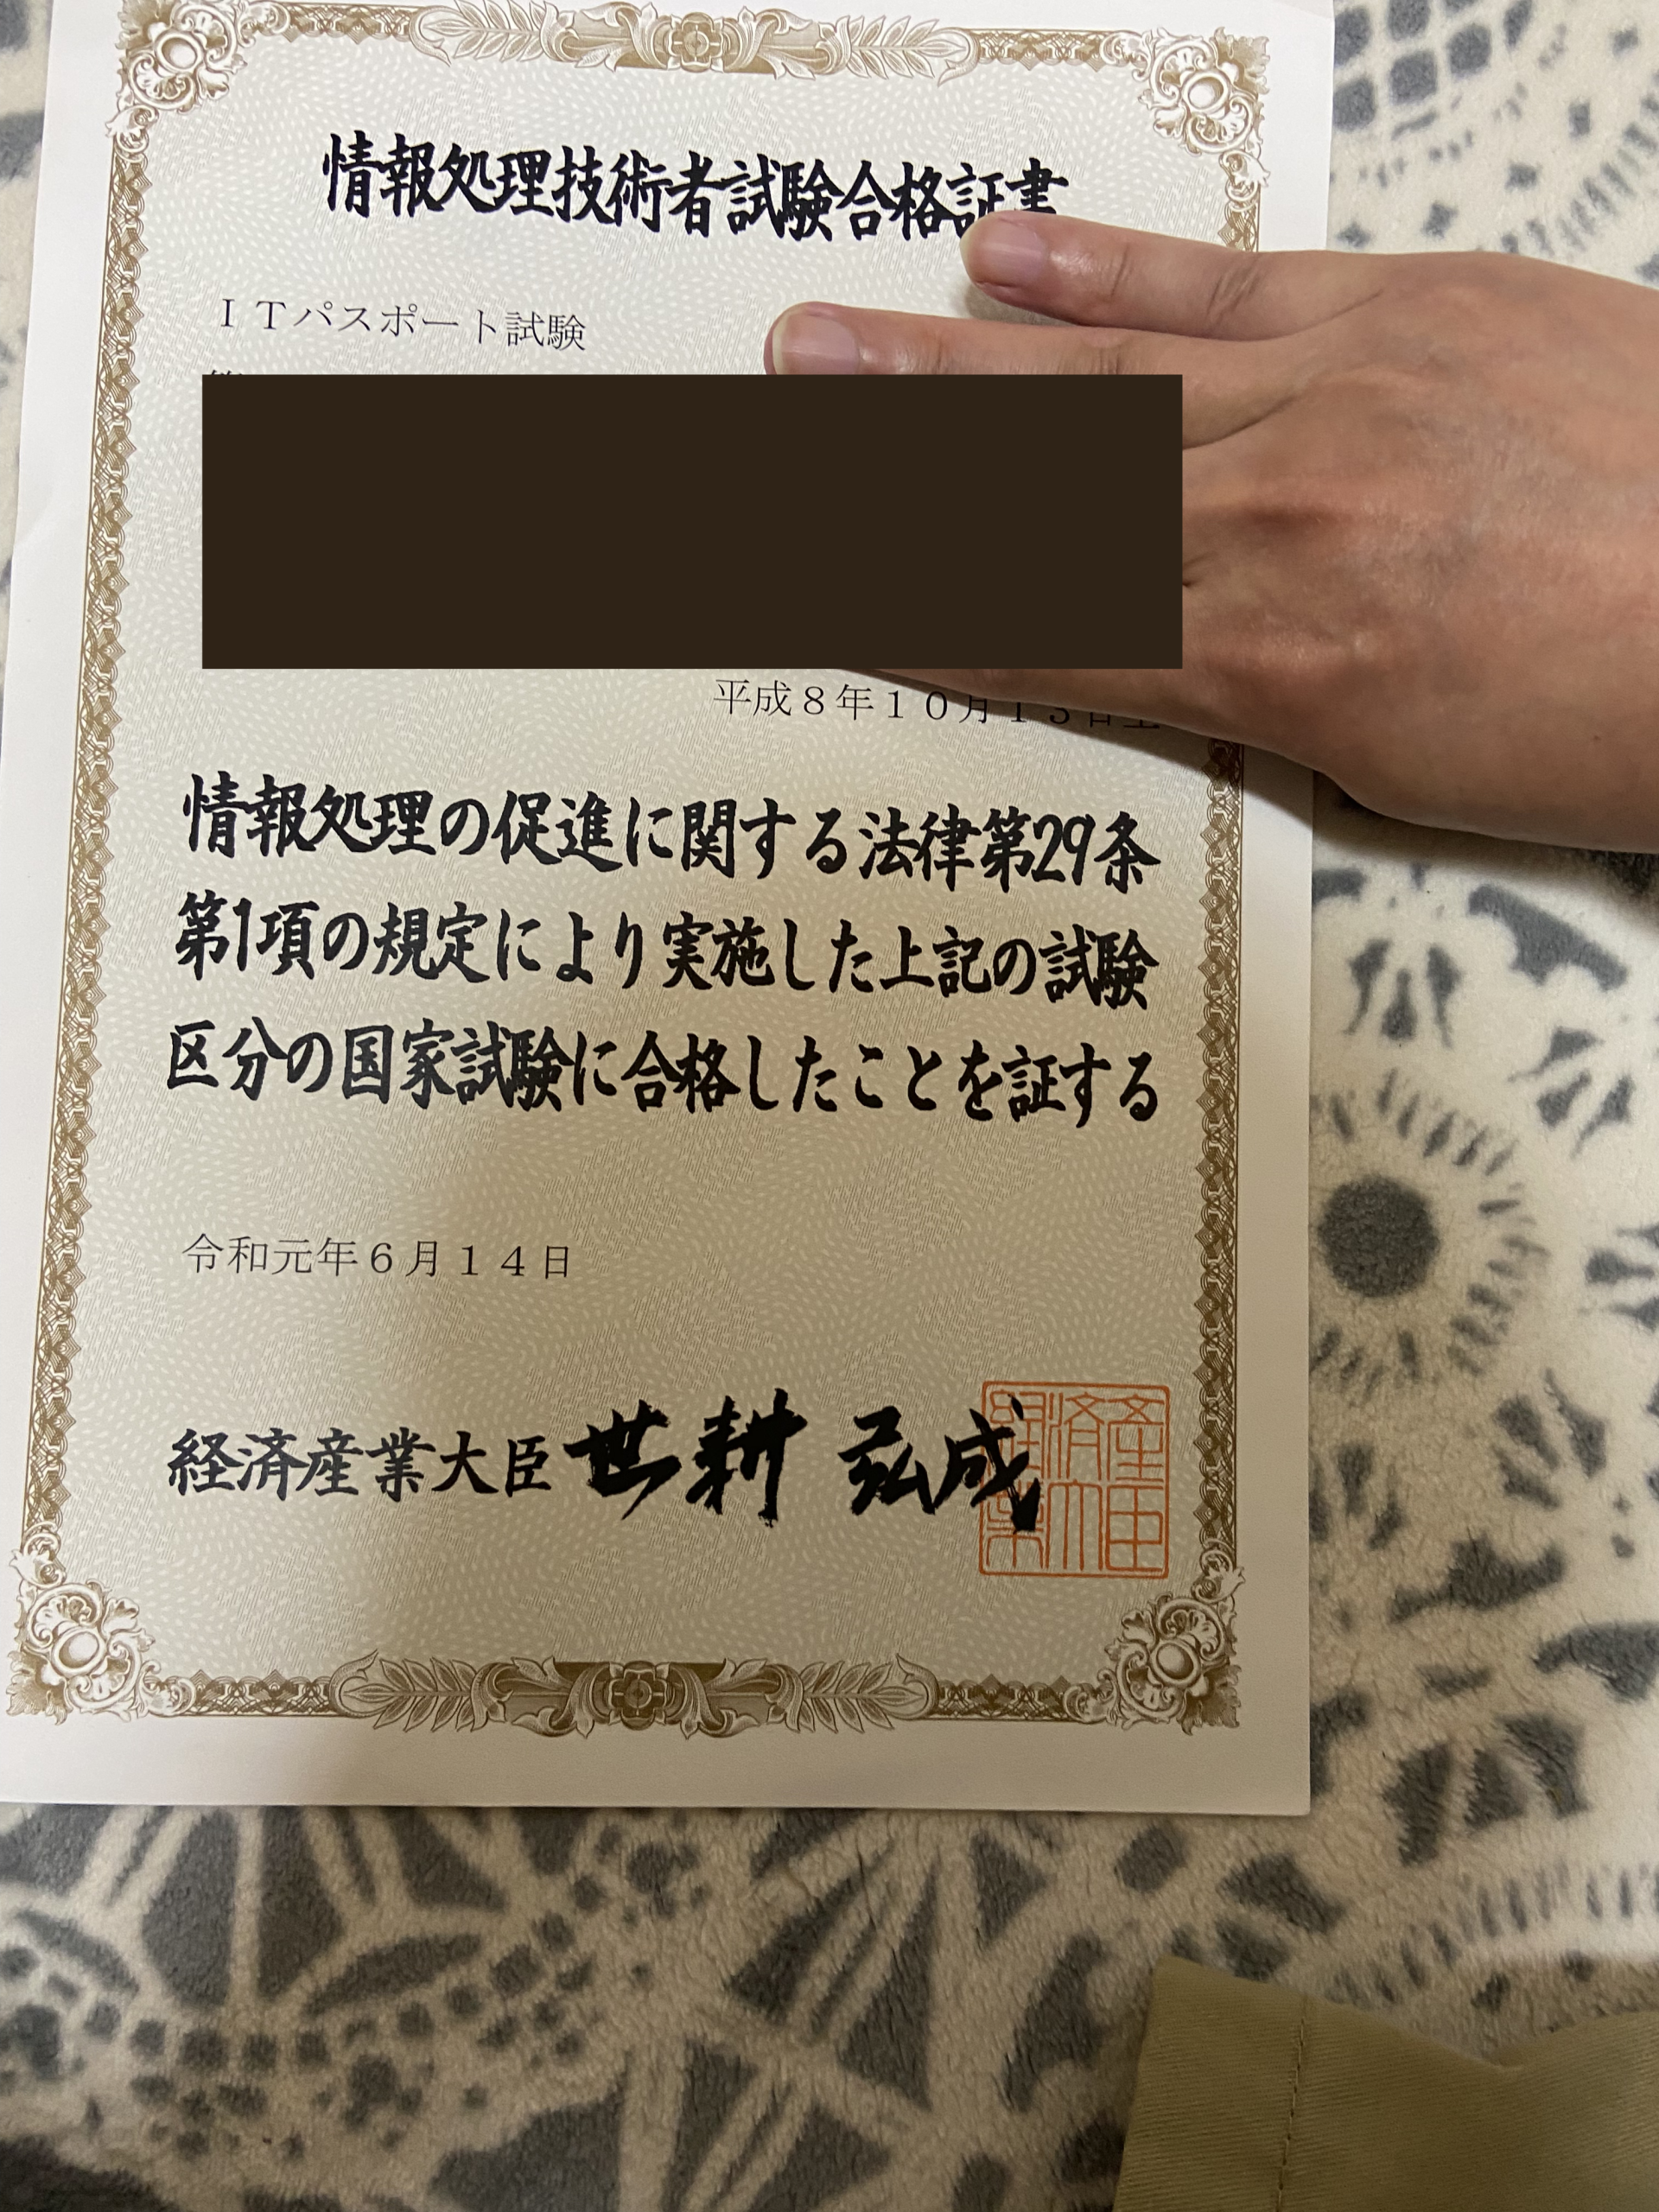 情報処理技術者試験合格証書
ＩＴパスポート試験
平成８年１０月１３日生
情報処理の促進に関する法律第29条
第1項の規定により実施した上記の試験
区分の国家試験に合格したことを証する
令和元年６月１４日
経済産業大臣 世耕 弘成